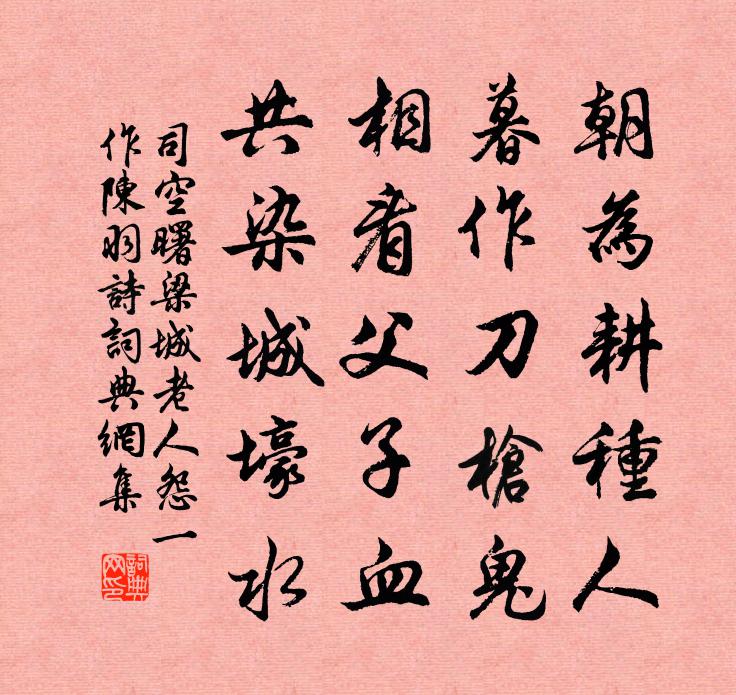 朝為耕種人
暮作刀槍鬼
相看父子血
共染城壕水
司空曙梁城老人怨一
作陳羽詩詞典網集
詞典
网印